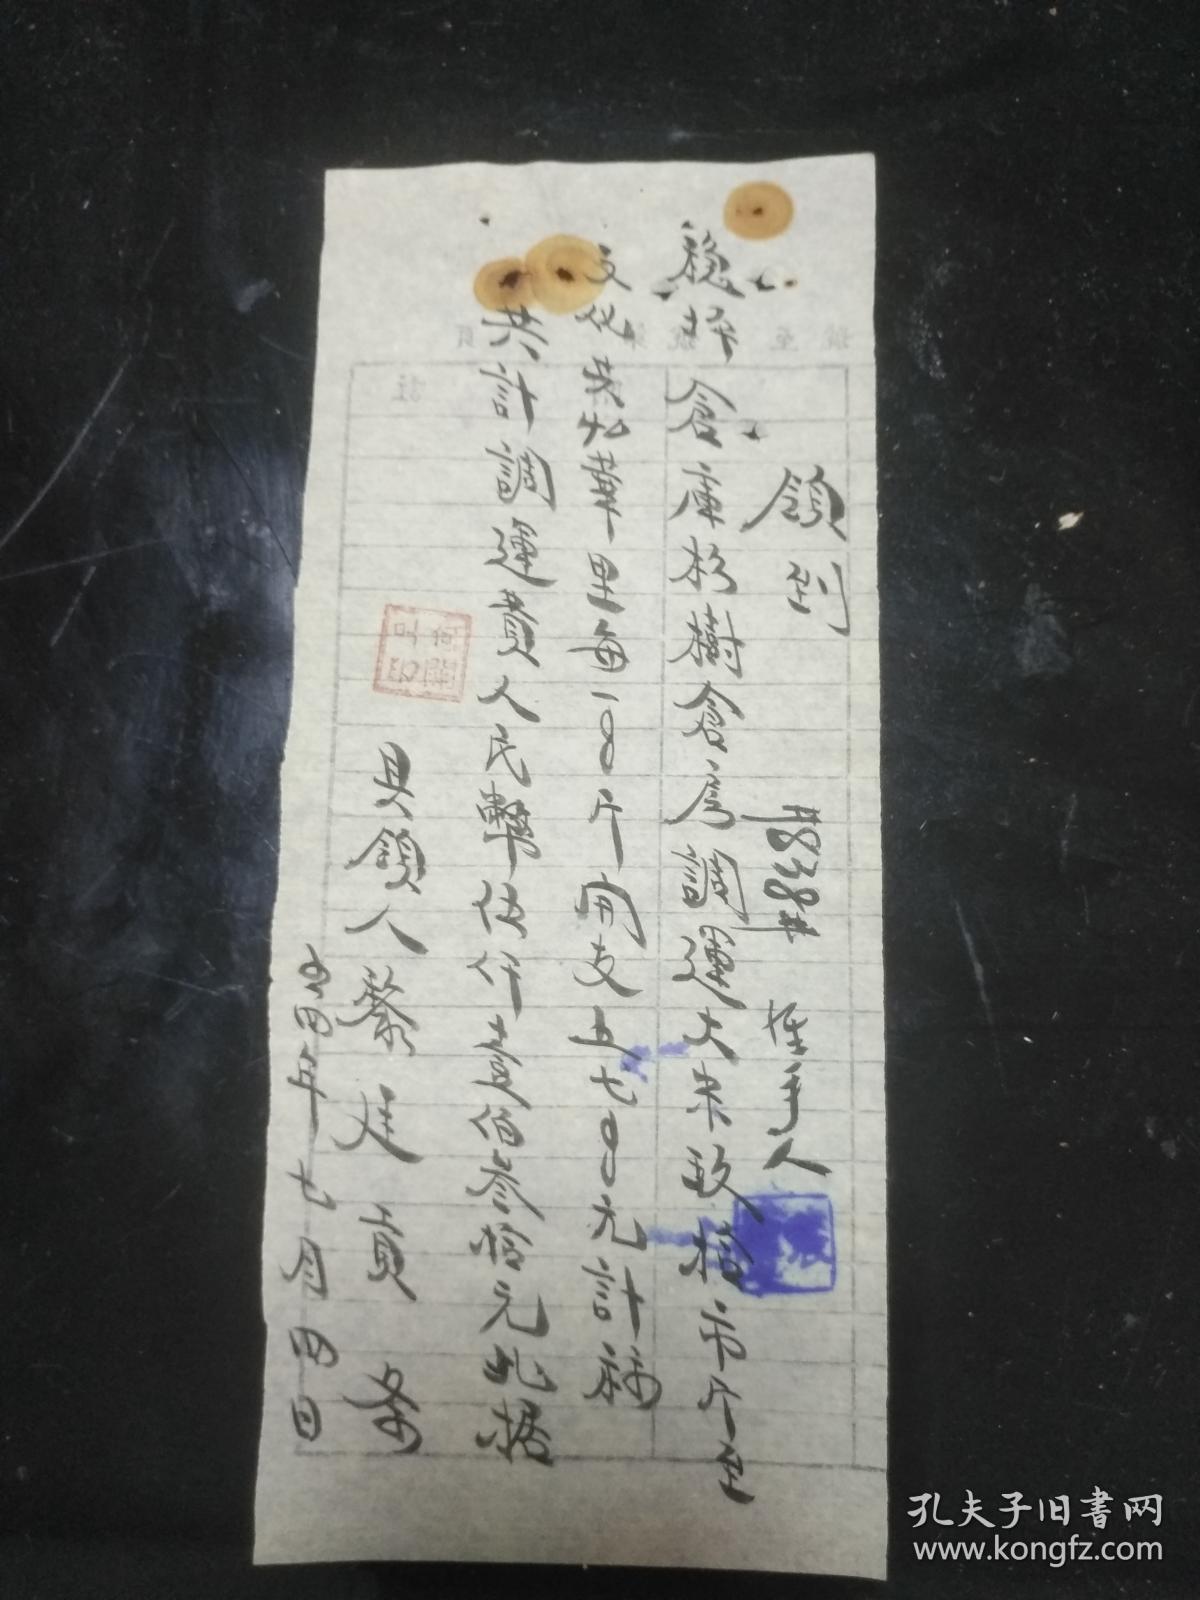 領到 #838# 經手人
稳坪倉庫杉樹倉房調運大米玖拾市斤至
文化 華里每一00斤開支五七00元計祘
共計調運費人民幣伍仟壹佰叁拾元此据
具領人蔡廷貞条
五四年七月四日
孔夫子旧书网
www.kongfz.com